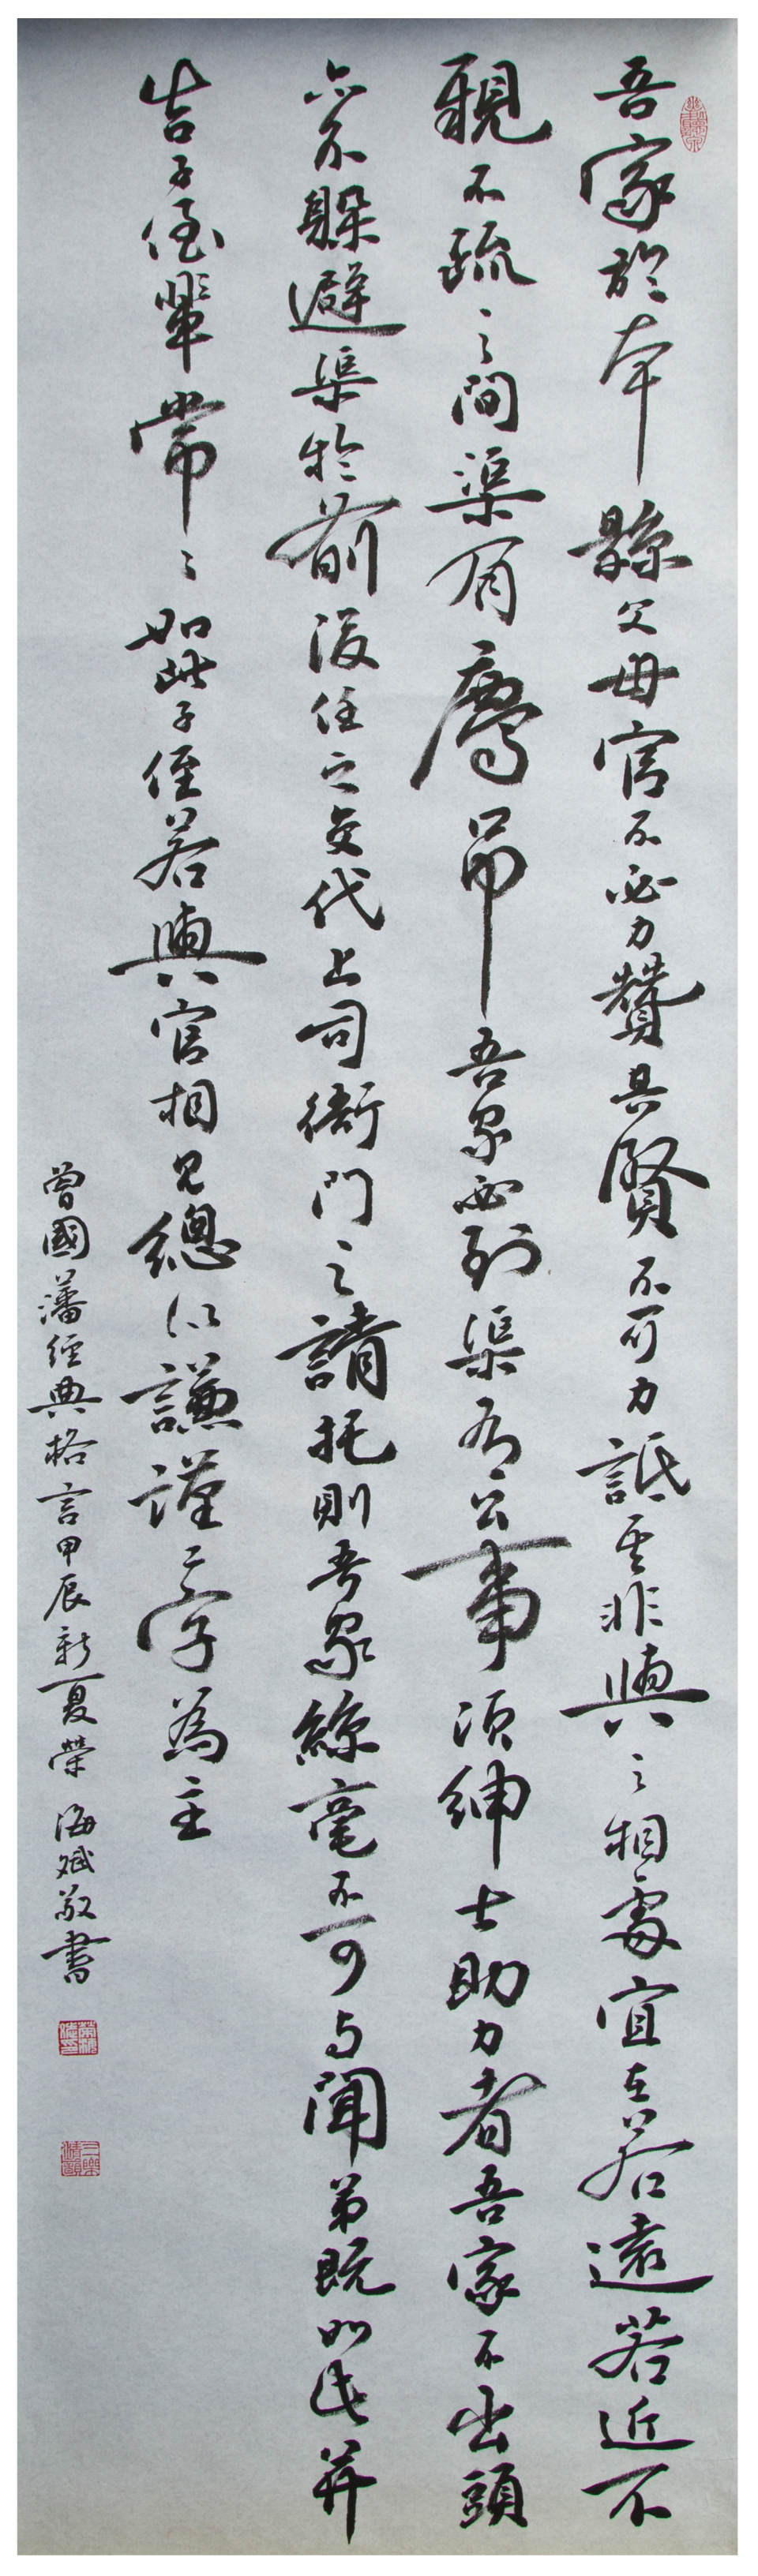 吾家於本縣父母官不必力贊其賢不可力詆其非與之相處宜在若遠若近不
親不疏之間渠有慶弔吾家必到渠有公事須紳士助力者吾家不出頭
亦不躲避渠於前後任之交代上司衙門之請托則吾家絲毫不可与聞弟既如此并
告子侄輩常〻如此子侄若與官相見總以謙謹二字為主
曾國藩經典格言甲辰新夏榮海斌敬書